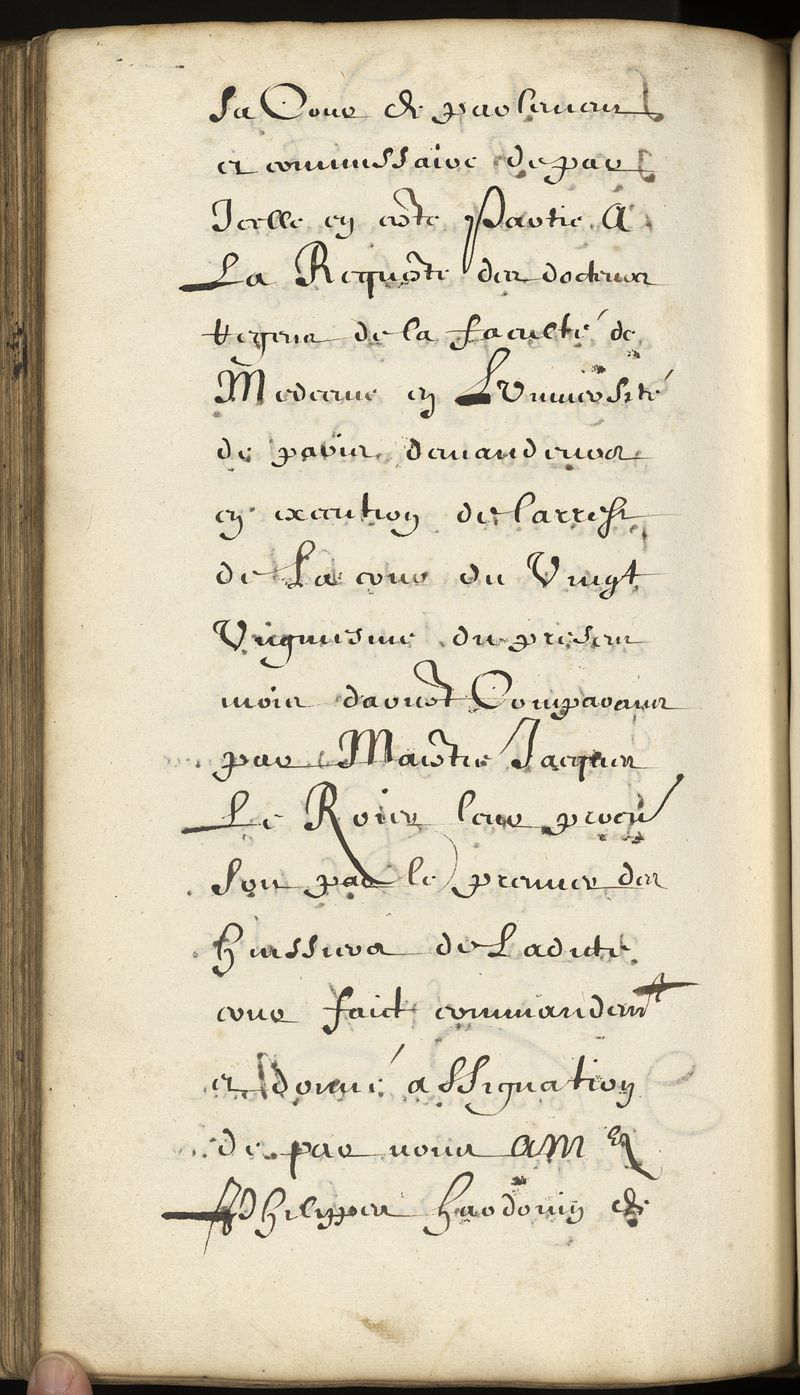 sa Cour de parlement
et commissaire de par
Icelle en ceste Partie A
La Requeste des docteurs
Regens de la faculté de
Medecine en Luniversité
de paris demandeurs
en execution de larrest
de La cour du Vingt
Vnguiesme du present
mois daoust Comparans
par Maistre Jacques
Le Roier leur procur
Soit par le premier des
huissiers de Ladicte
cour faict commandemt
et donné assignation
de par nous a Me
Philippes hardouin de